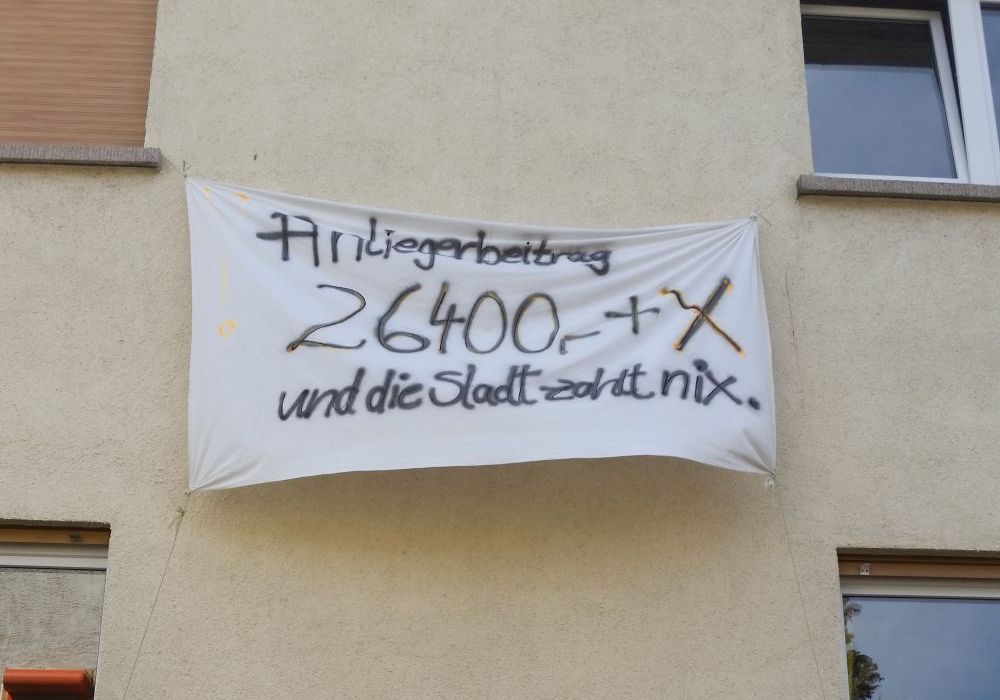 Anliegerbeitrag
26400,- + X
und die Stadt zahlt nix.